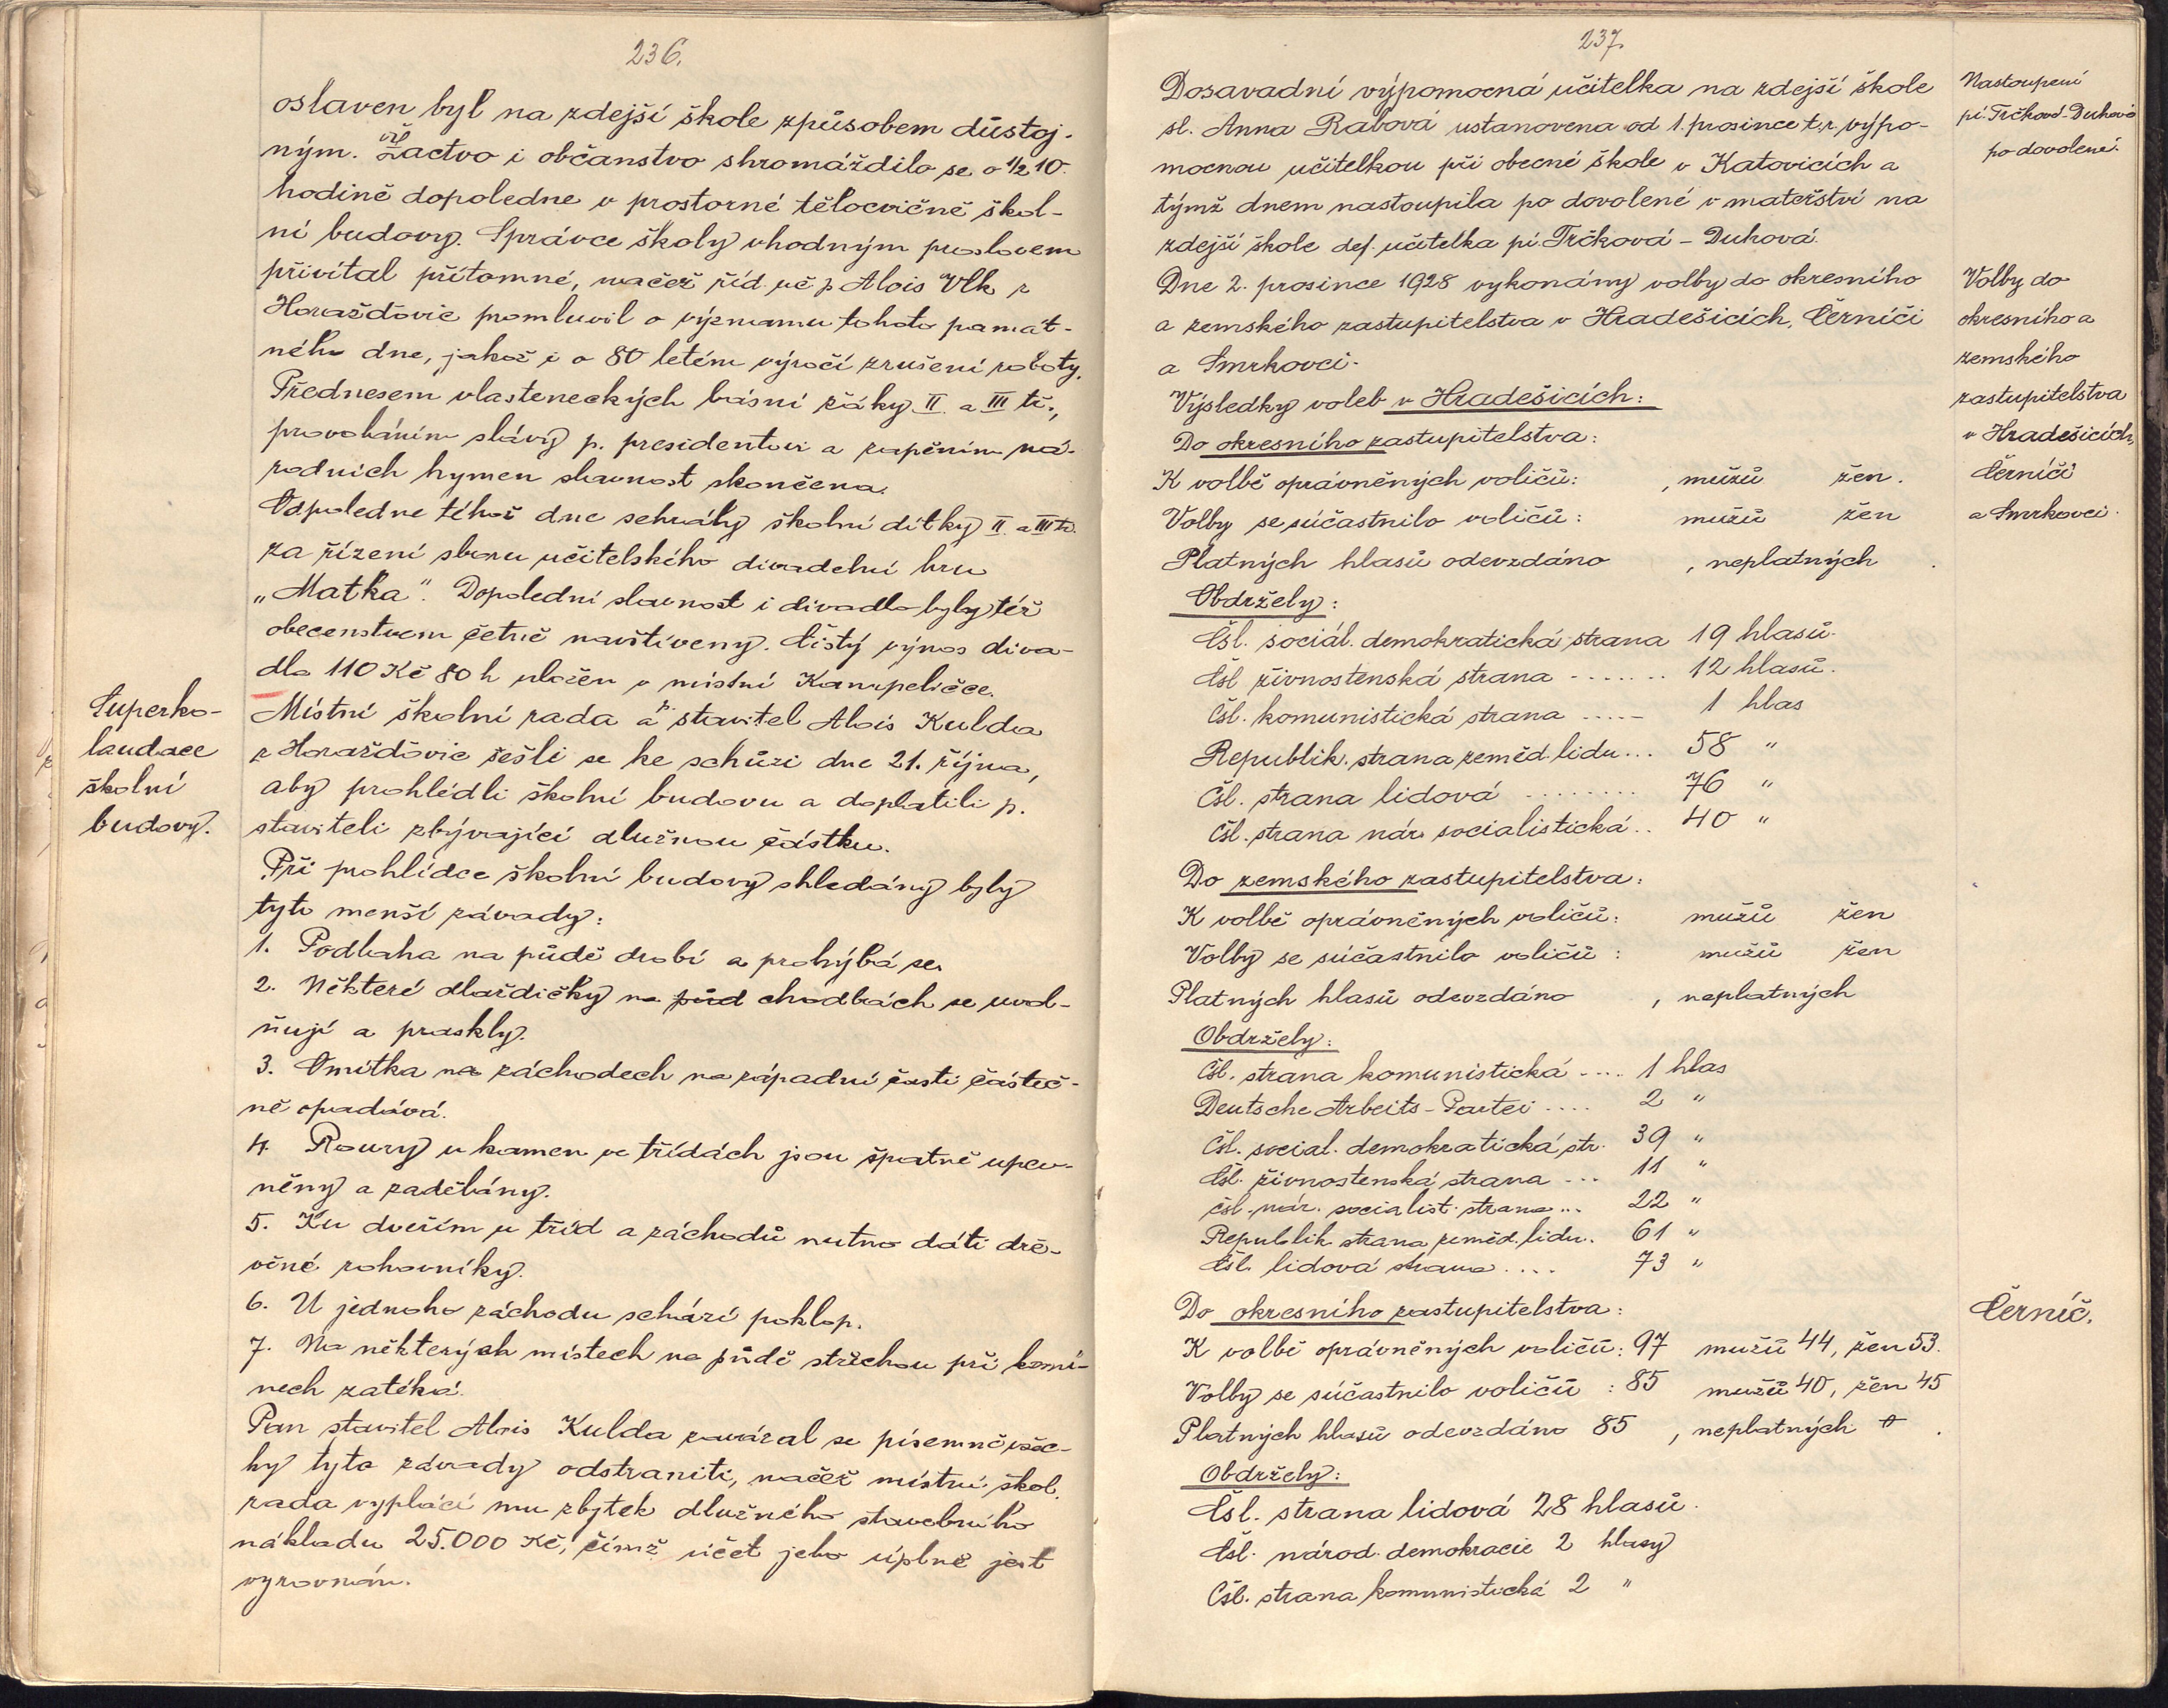 236.
oslaven byl na zdejší škole způsobem důstoj-
ným. Vše
Žactvo i občanstvo shromáždilo se o ½ 10.
hodině dopoledne v prostorné tělocvičně škol-
ní budovy. Správce školy vhodným proslovem
přivítal přítomné, načež říd. uč. p. Alois Vlk z
Horažďovic promluvil o významu tohoto památ-
ného dne, jakož i o 80 letém výročí zrušení roboty.
Přednesem vlasteneckých básní žáky II. a III tř.,
provoláním slávy p. presidentovi a zapěním ná-
rodních hymen slavnost skončena.
Odpoledne téhož dne sehrály školní dítky II. a III tř.
za řízení sboru učitelského divadelní hru
„Matka". Dopolední slavnost i divadlo byly též
obecenstvem četně navštíveny. Čistý výnos diva-
dla 110 Kč 80 h uložen v místní Kampeličce.
Superko-
laudace
školní
budovy.
Místní školní rada a p. stavitel Alois Kulda
z Horažďovic sešli se ke schůzi dne 21. října,
aby prohlédli školní budovu a doplatili p.
staviteli zbývající dlužnou částku.
Při prohlídce školní budovy shledány byly
tyto menší závady:
1. Podlaha na půdě drobí a prohýbá se.
2. Některé dlaždičky na půd chodbách se uvol-
ňují a praskly.
3. Omítka na záchodech na západní časti částeč-
ně opadává.
4. Roury u kamen ve třídách jsou špatně upev-
něny a zadělány.
5. Ku dveřím u tříd a záchodů nutno dáti dře-
věné rohovníky.
6. U jednoho záchodu schází poklop.
7. Na některých místech na půdě střechou při komí-
nech zatéká.
Pan stavitel Alois Kulda zavázal se písemně všec-
ky tyto závady odstraniti, načež místní škol.
rada vyplácí mu zbytek dlužného stavebního
nákladu 25.000 Kč, čímž účet jeho úplně jest
vyrovnán.
237.
Dosavadní výpomocná učitelka na zdejší škole
sl. Anna Rabová ustanovena od 1. prosince t.r. výpo-
mocnou učitelkou při obecné škole v Katovicích a
týmž dnem nastoupila po dovolené v mateřství na
zdejší škole def. učitelka pí. Trčková - Duhová.
Nastoupení
pí. Trčkové-Duhové
po dovolené.
Dne 2. prosince 1928 vykonány volby do okresního
a zemského zastupitelstva v Hradešicích, Černíči
a Smrkovci.
Volby do
okresního a
zemského
zastupitelstva
v Hradešicích,
Černíči
a Smrkovci.
Výsledky voleb v Hradešicích:
Do okresního zastupitelstva:
K volbě oprávněných voličů: , mužů žen.
Volby se súčastnilo voličů: mužů žen
Platných hlasů odevzdáno , neplatných .
Obdržely:
Čsl. sociál. demokratická strana 19 hlasů.
Čsl živnostenská strana ------- 12 hlasů.
Čsl. komunistická strana ----- 1 hlas
Republik. strana zeměd. lidu... 58 "
Čsl. strana lidová ........ 76 "
Čsl. strana nár. socialistická.. 40 "
Do zemského zastupitelstva:
K volbě oprávněných voličů: mužů žen
Volby se súčastnilo voličů: mužů žen
Platných hlasů odevzdáno , neplatných
Obdržely:
Čsl. strana komunistická .... 1 hlas
Deutsche Arbeits-Partei .... 2 "
Čsl. social. demokratická str. 39 "
Čsl. živnostenská strana ... 11 "
Čsl. nár. socialist. strana... 22 "
Republik. strana zeměd. lidu. 61 "
Čsl. lidová strana .... 73 "
Černíč.
Do okresního zastupitelstva:
K volbě oprávněných voličů: 97 mužů 44, žen 53.
Volby se súčastnilo voličů: 85 mužů 40, žen 45
Platných hlasů odevzdáno 85 , neplatných 0 .
Obdržely:
Čsl. strana lidová 28 hlasů.
Čsl. národ. demokracie 2 hlasy
Čsl. strana komunistická 2 "